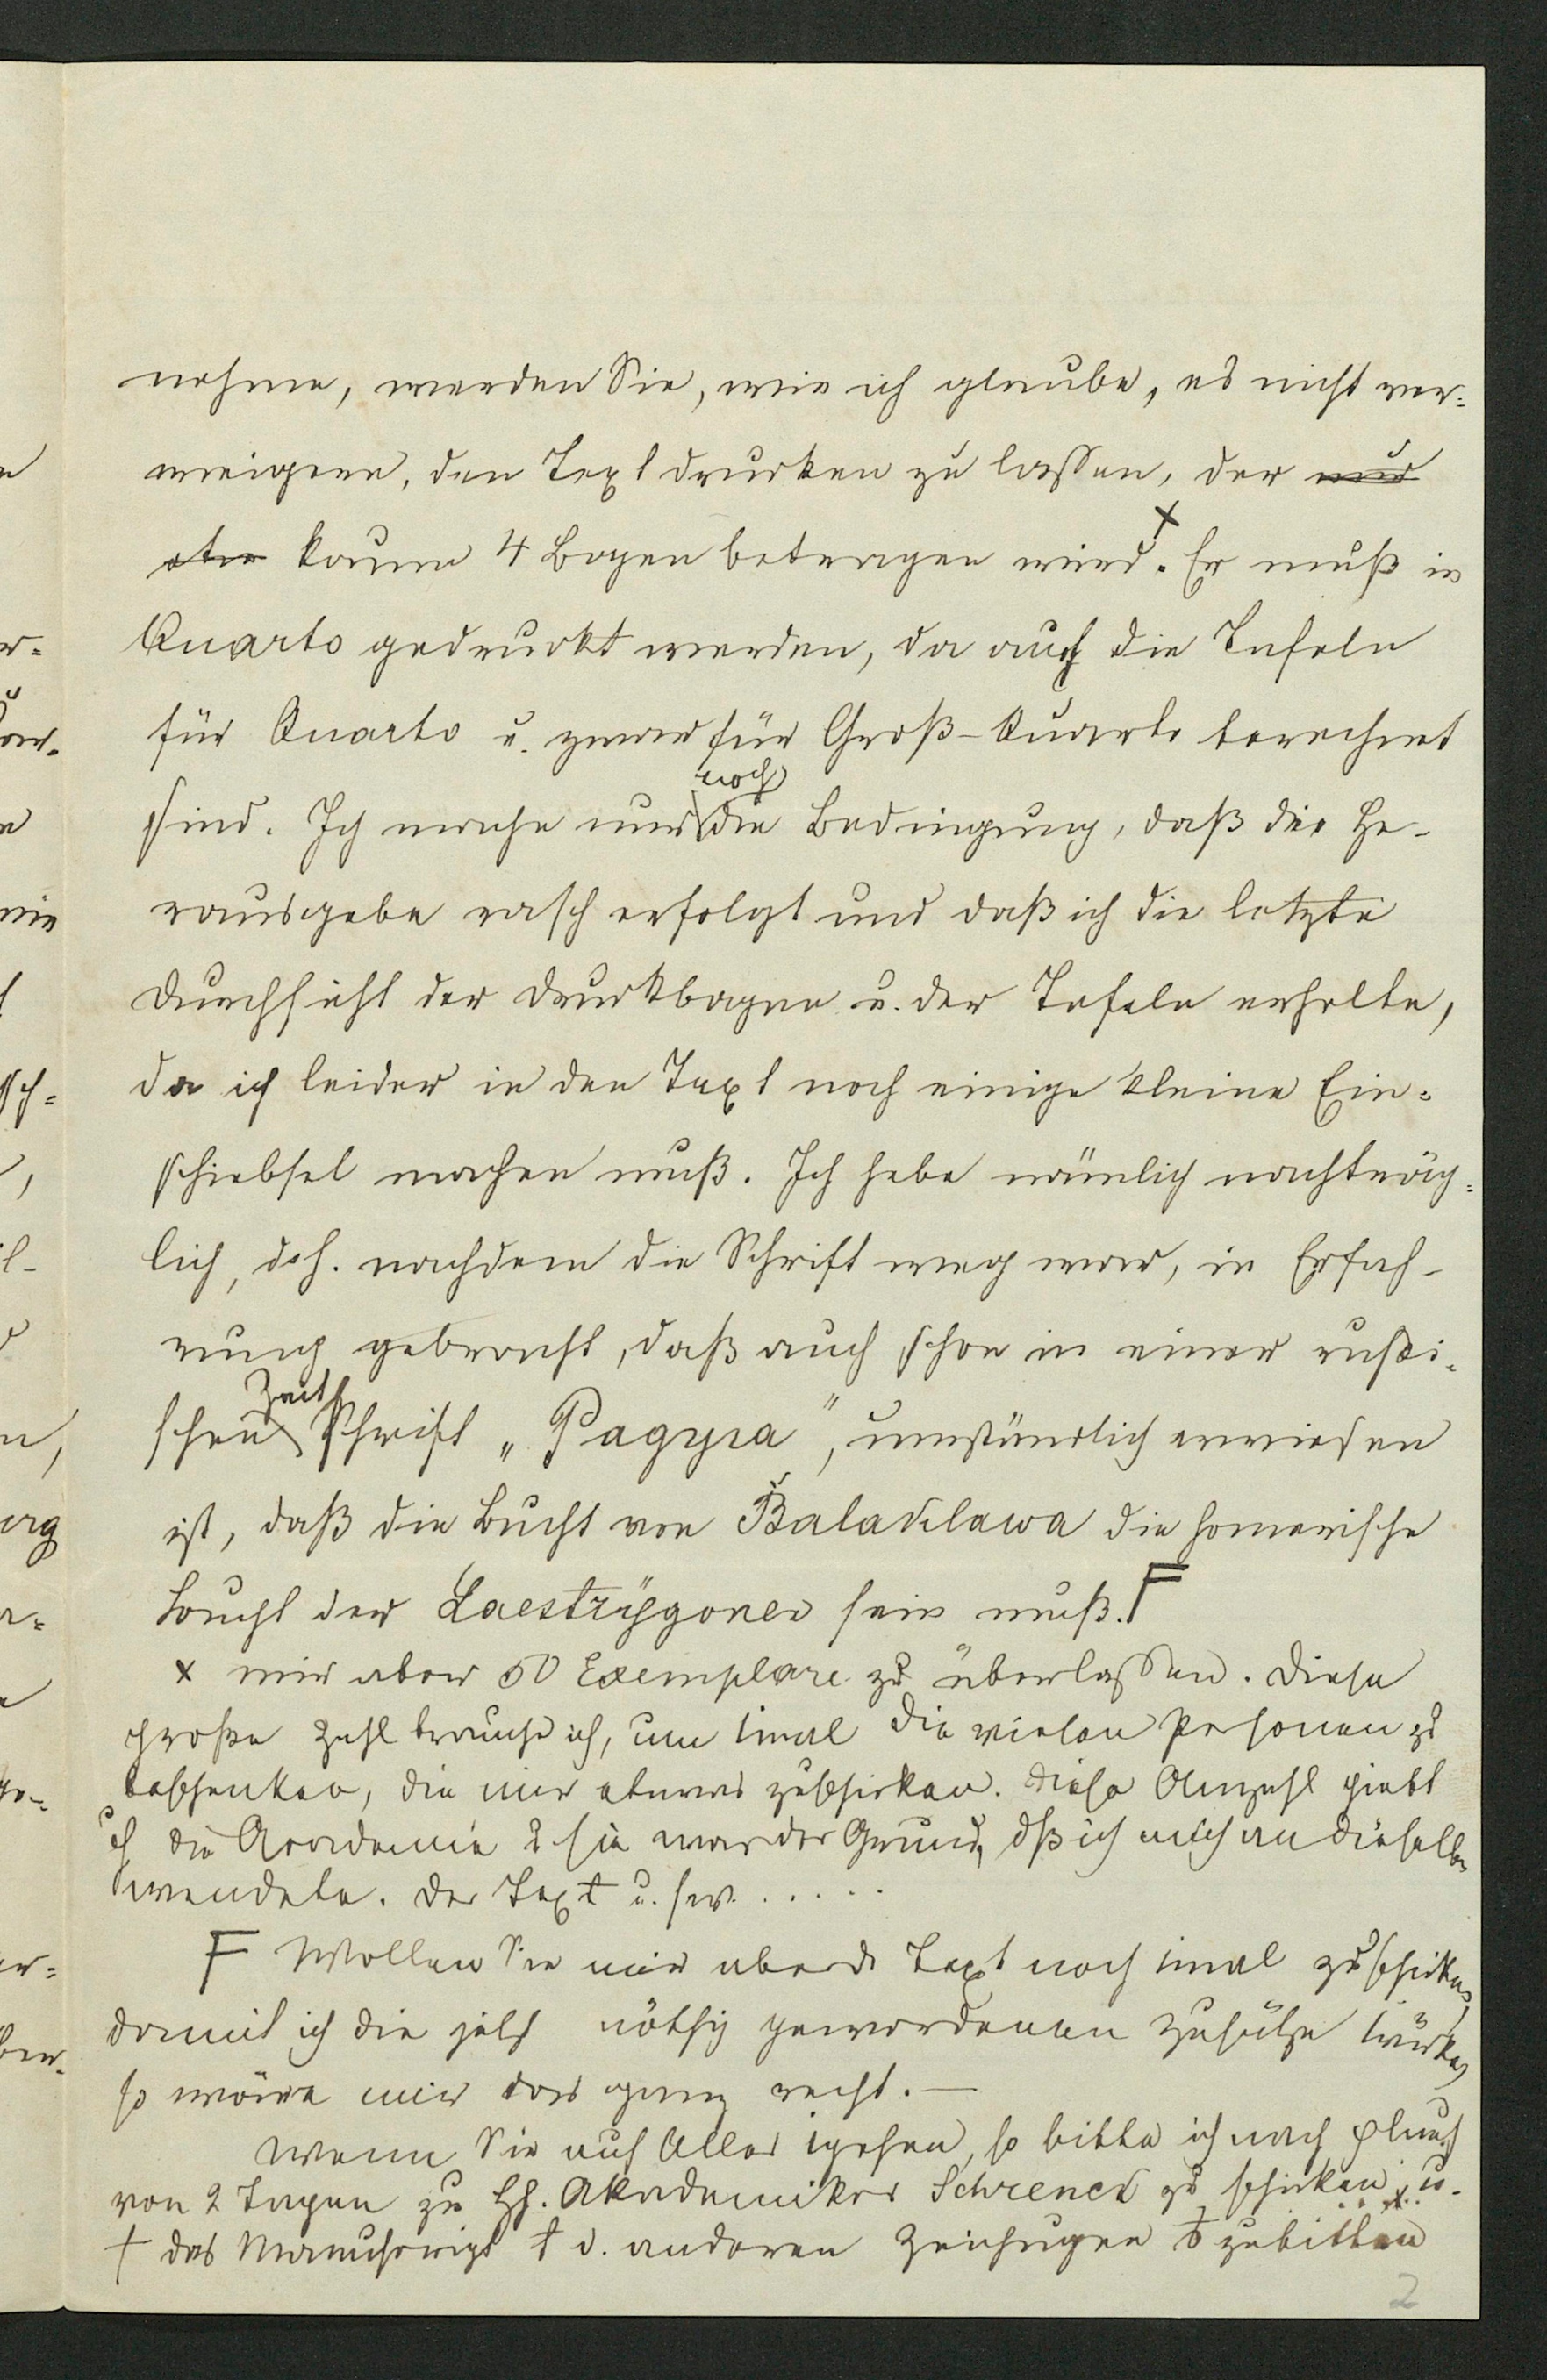 nehme, werden Sie, wie ich glaube, es nicht ver-
weigern, den Text drucken zu lassen, der nur
etwa kaum 4 Bogen betragen wird. x Er muß in
Quarto gedruckt werden, da auch die Tafeln
für Quarto u. zwar für Groß-Quarto berechnet
sind. Ich mache nur noch die Bedingung, daß die He-
rausgabe rasch erfolgt und daß ich die letzte
Durchsicht der Druckbogen u. der Tafeln erhalte,
da ich leider in den Text noch einige kleine Ein-
schiebsel machen muß. Ich habe nämlich nachträg-
lich, d. h. nachdem die Schrift weg war, in Erfah-
rung gebracht, daß auch schon in einer rußi-
schen Zeitschrift „Pagyra“, umständlich erwiesen
ist, daß die Bucht von Balaklawa die homerische
Bucht der Laestrÿgonen sein muß. F
x mir aber 50 Exemplare zu überlassen. Diese
große Zahl brauche ich, um 1mal die vielen Personen zu
beschenken, die mir etwas zuschicken. Diese Anzahl giebt
die Academie & sie war der Grund, dß ich mich an dieselbe
wendete. Der Text u. s. w. . . . . .
F Wollen Sie mir aber d. Text noch 1mal zuschicken,
damit ich die jetzt nöthig gewordenen Zusätze
so wäre mir das ganz recht. —
Wenn Sie auf Alles 1gehen, so bitte ich nach
von 2 Tagen zu HH. Akademiker Schrenck zu schicken u.
+ das Manuscript d. anderen Zeichnugen zubitten
2